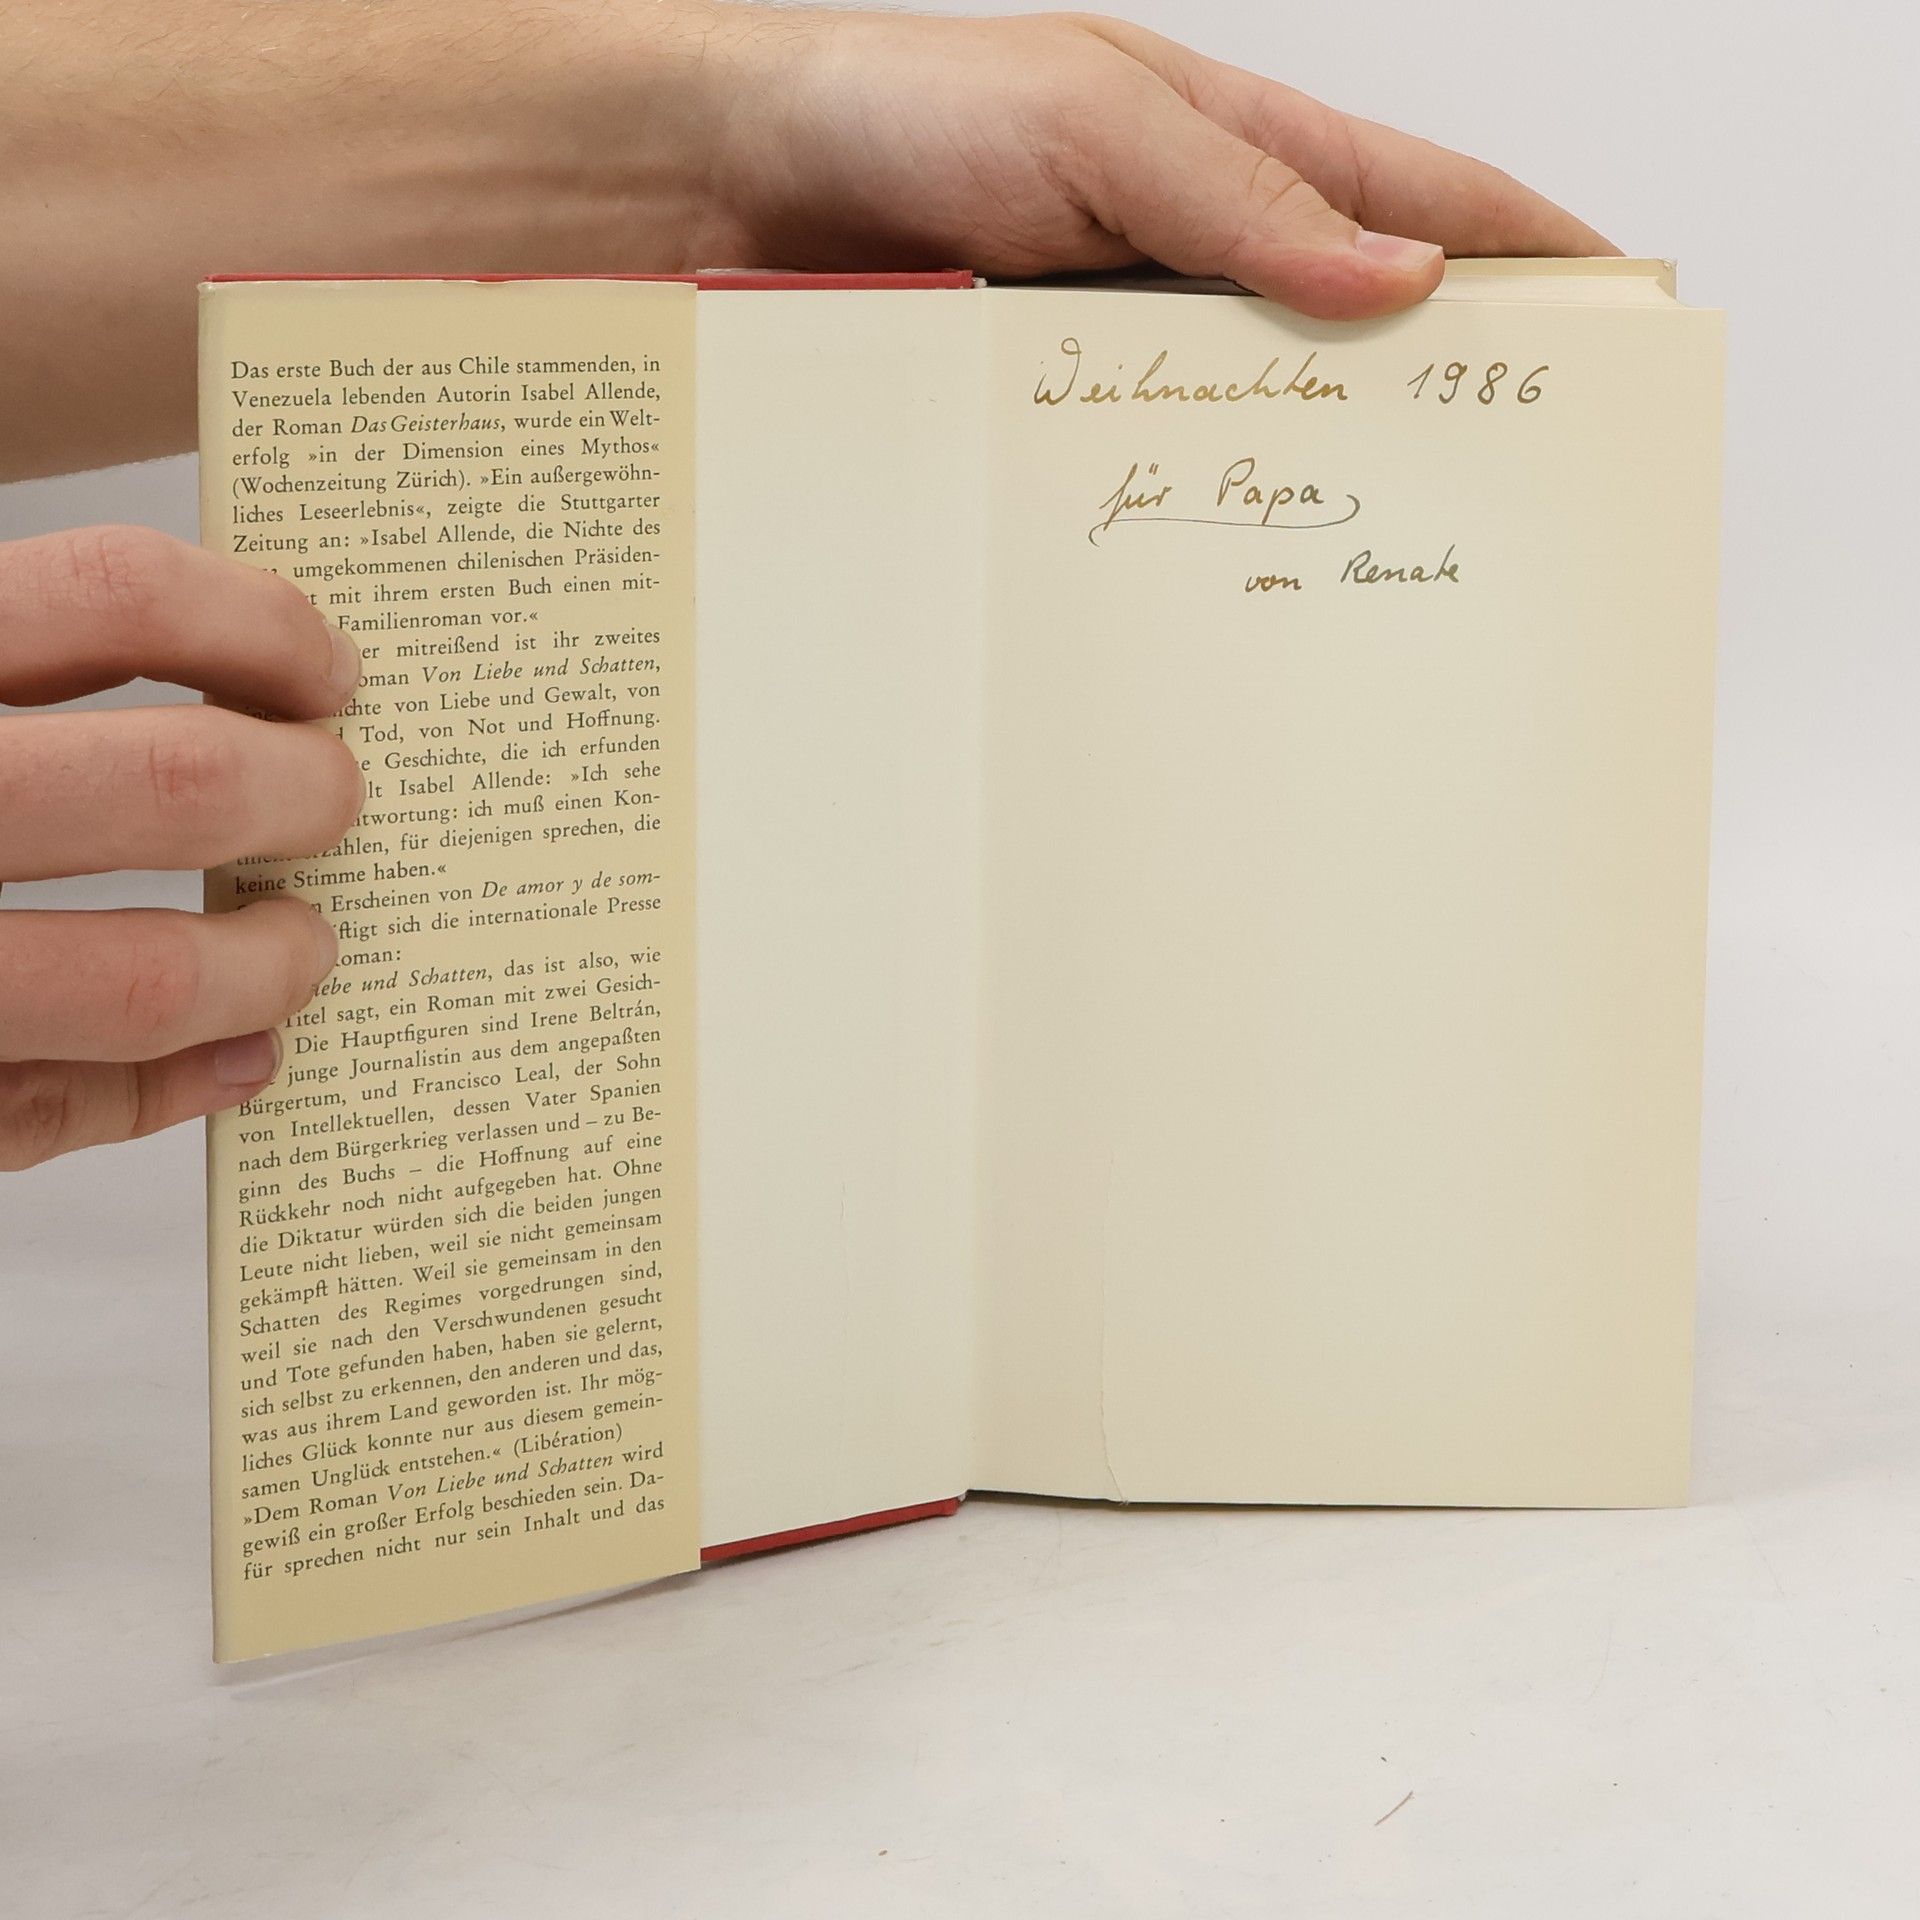 Das erste Buch der aus Chile stammenden, in
Venezuela lebenden Autorin Isabel Allende,
der Roman Das Geisterhaus, wurde ein Welt-
erfolg »in der Dimension eines Mythos«
(Wochenzeitung Zürich). »Ein außergewöhn-
liches Leseerlebnis«, zeigte die Stuttgarter
Zeitung an: »Isabel Allende, die Nichte des
umgekommenen chilenischen Präsiden-
mit ihrem ersten Buch einen mit-
Familienroman vor.«
mitreißend ist ihr zweites
Von Liebe und Schatten,
von Liebe und Gewalt, von
Tod, von Not und Hoffnung.
Geschichte, die ich erfunden
Isabel Allende: »Ich sehe
ich muß einen Kon-
für diejenigen sprechen, die
keine Stimme haben.«
Erscheinen von De amor y de som-
sich die internationale Presse
und Schatten, das ist also, wie
sagt, ein Roman mit zwei Gesich-
Die Hauptfiguren sind Irene Beltrán,
junge Journalistin aus dem angepaßten
Bürgertum, und Francisco Leal, der Sohn
von Intellektuellen, dessen Vater Spanien
nach dem Bürgerkrieg verlassen und – zu Be-
ginn des Buchs – die Hoffnung auf eine
Rückkehr noch nicht aufgegeben hat. Ohne
die Diktatur würden sich die beiden jungen
Leute nicht lieben, weil sie nicht gemeinsam
gekämpft hätten. Weil sie gemeinsam in den
Schatten des Regimes vorgedrungen sind,
weil sie nach den Verschwundenen gesucht
und Tote gefunden haben, haben sie gelernt,
sich selbst zu erkennen, den anderen und das,
was aus ihrem Land geworden ist. Ihr mög-
liches Glück konnte nur aus diesem gemein-
samen Unglück entstehen.« (Libération)
»Dem Roman Von Liebe und Schatten wird
gewiß ein großer Erfolg beschieden sein. Da-
für sprechen nicht nur sein Inhalt und das
Weihnachten 1986
für Papa
von Renate